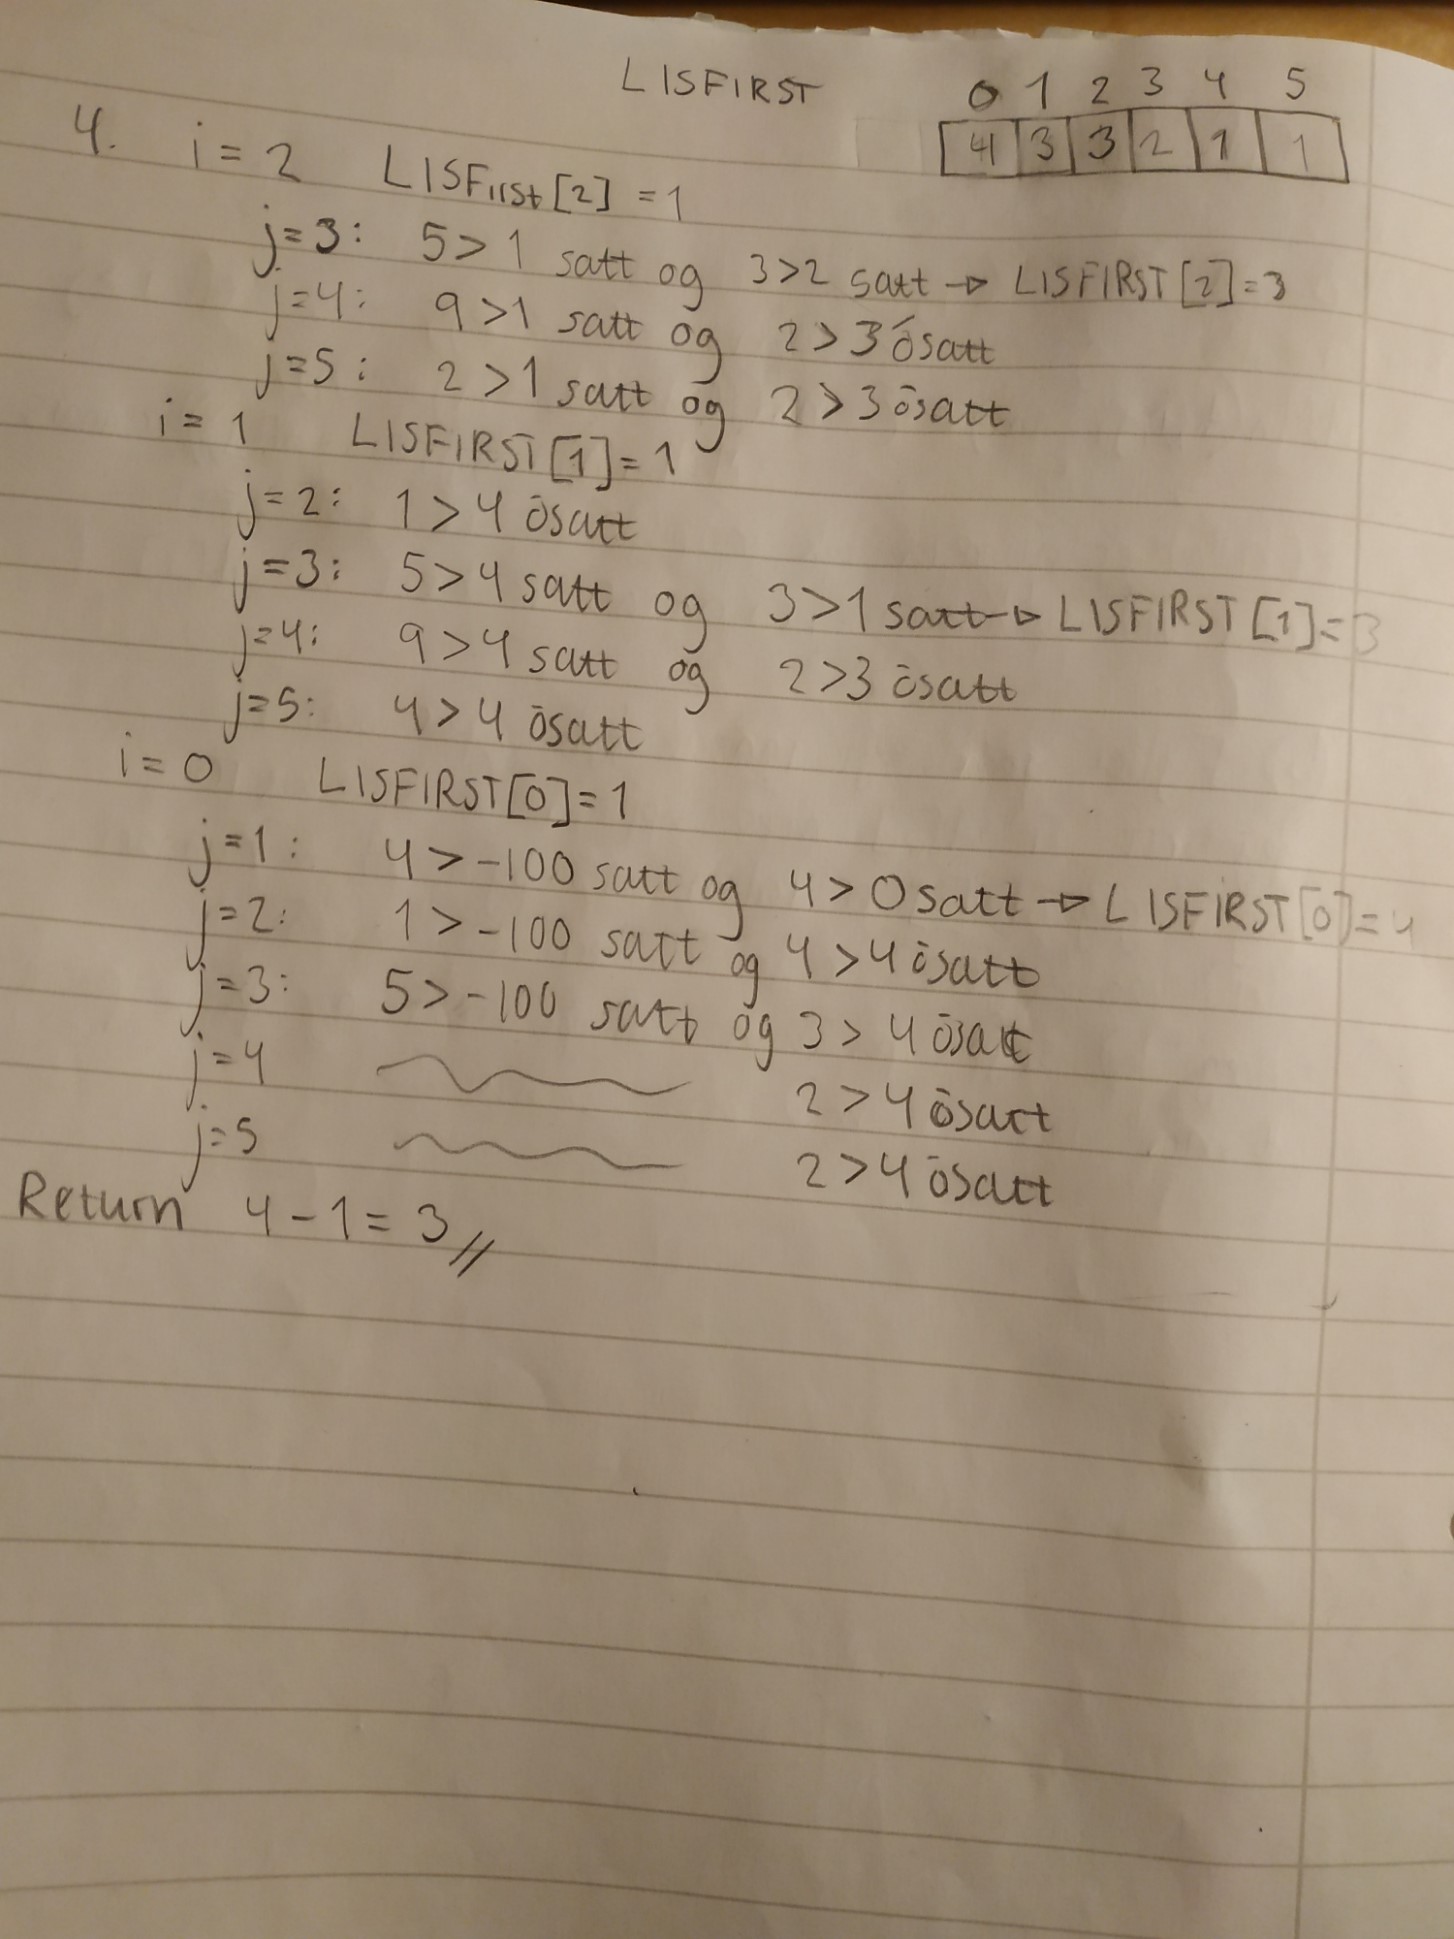 LISFIRST 0 1 2 3 4 5
4 3 3 2 1 1
4. i = 2 LISFirst[2] = 1
j=3: 5>1 satt og 3>2 satt → LISFIRST[2]=3
j=4: 9>1 satt og 2>3 ósatt
j=5: 2>1 satt og 2>3 ósatt
i = 1 LISFIRST[1]=1
j=2: 1>4 ósatt
j=3: 5>4 satt og 3>1 satt → LISFIRST[1]=3
j=4: 9>4 satt og 2>3 ósatt
j=5: 4>4 ósatt
i = 0 LISFIRST[0]=1
j=1: 4>-100 satt og 4>0 satt → LISFIRST[0]=4
j=2: 1>-100 satt og 4>4 ósatt
j=3: 5>-100 satt og 3>4 ósatt
j=4 2>4 ósatt
j=5 2>4 ósatt
Return 4-1=3//